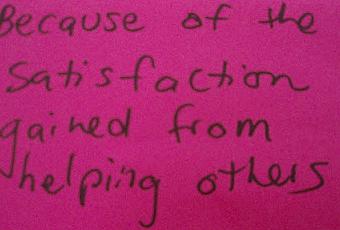 Because of the
Satisfaction
gained from
helping others